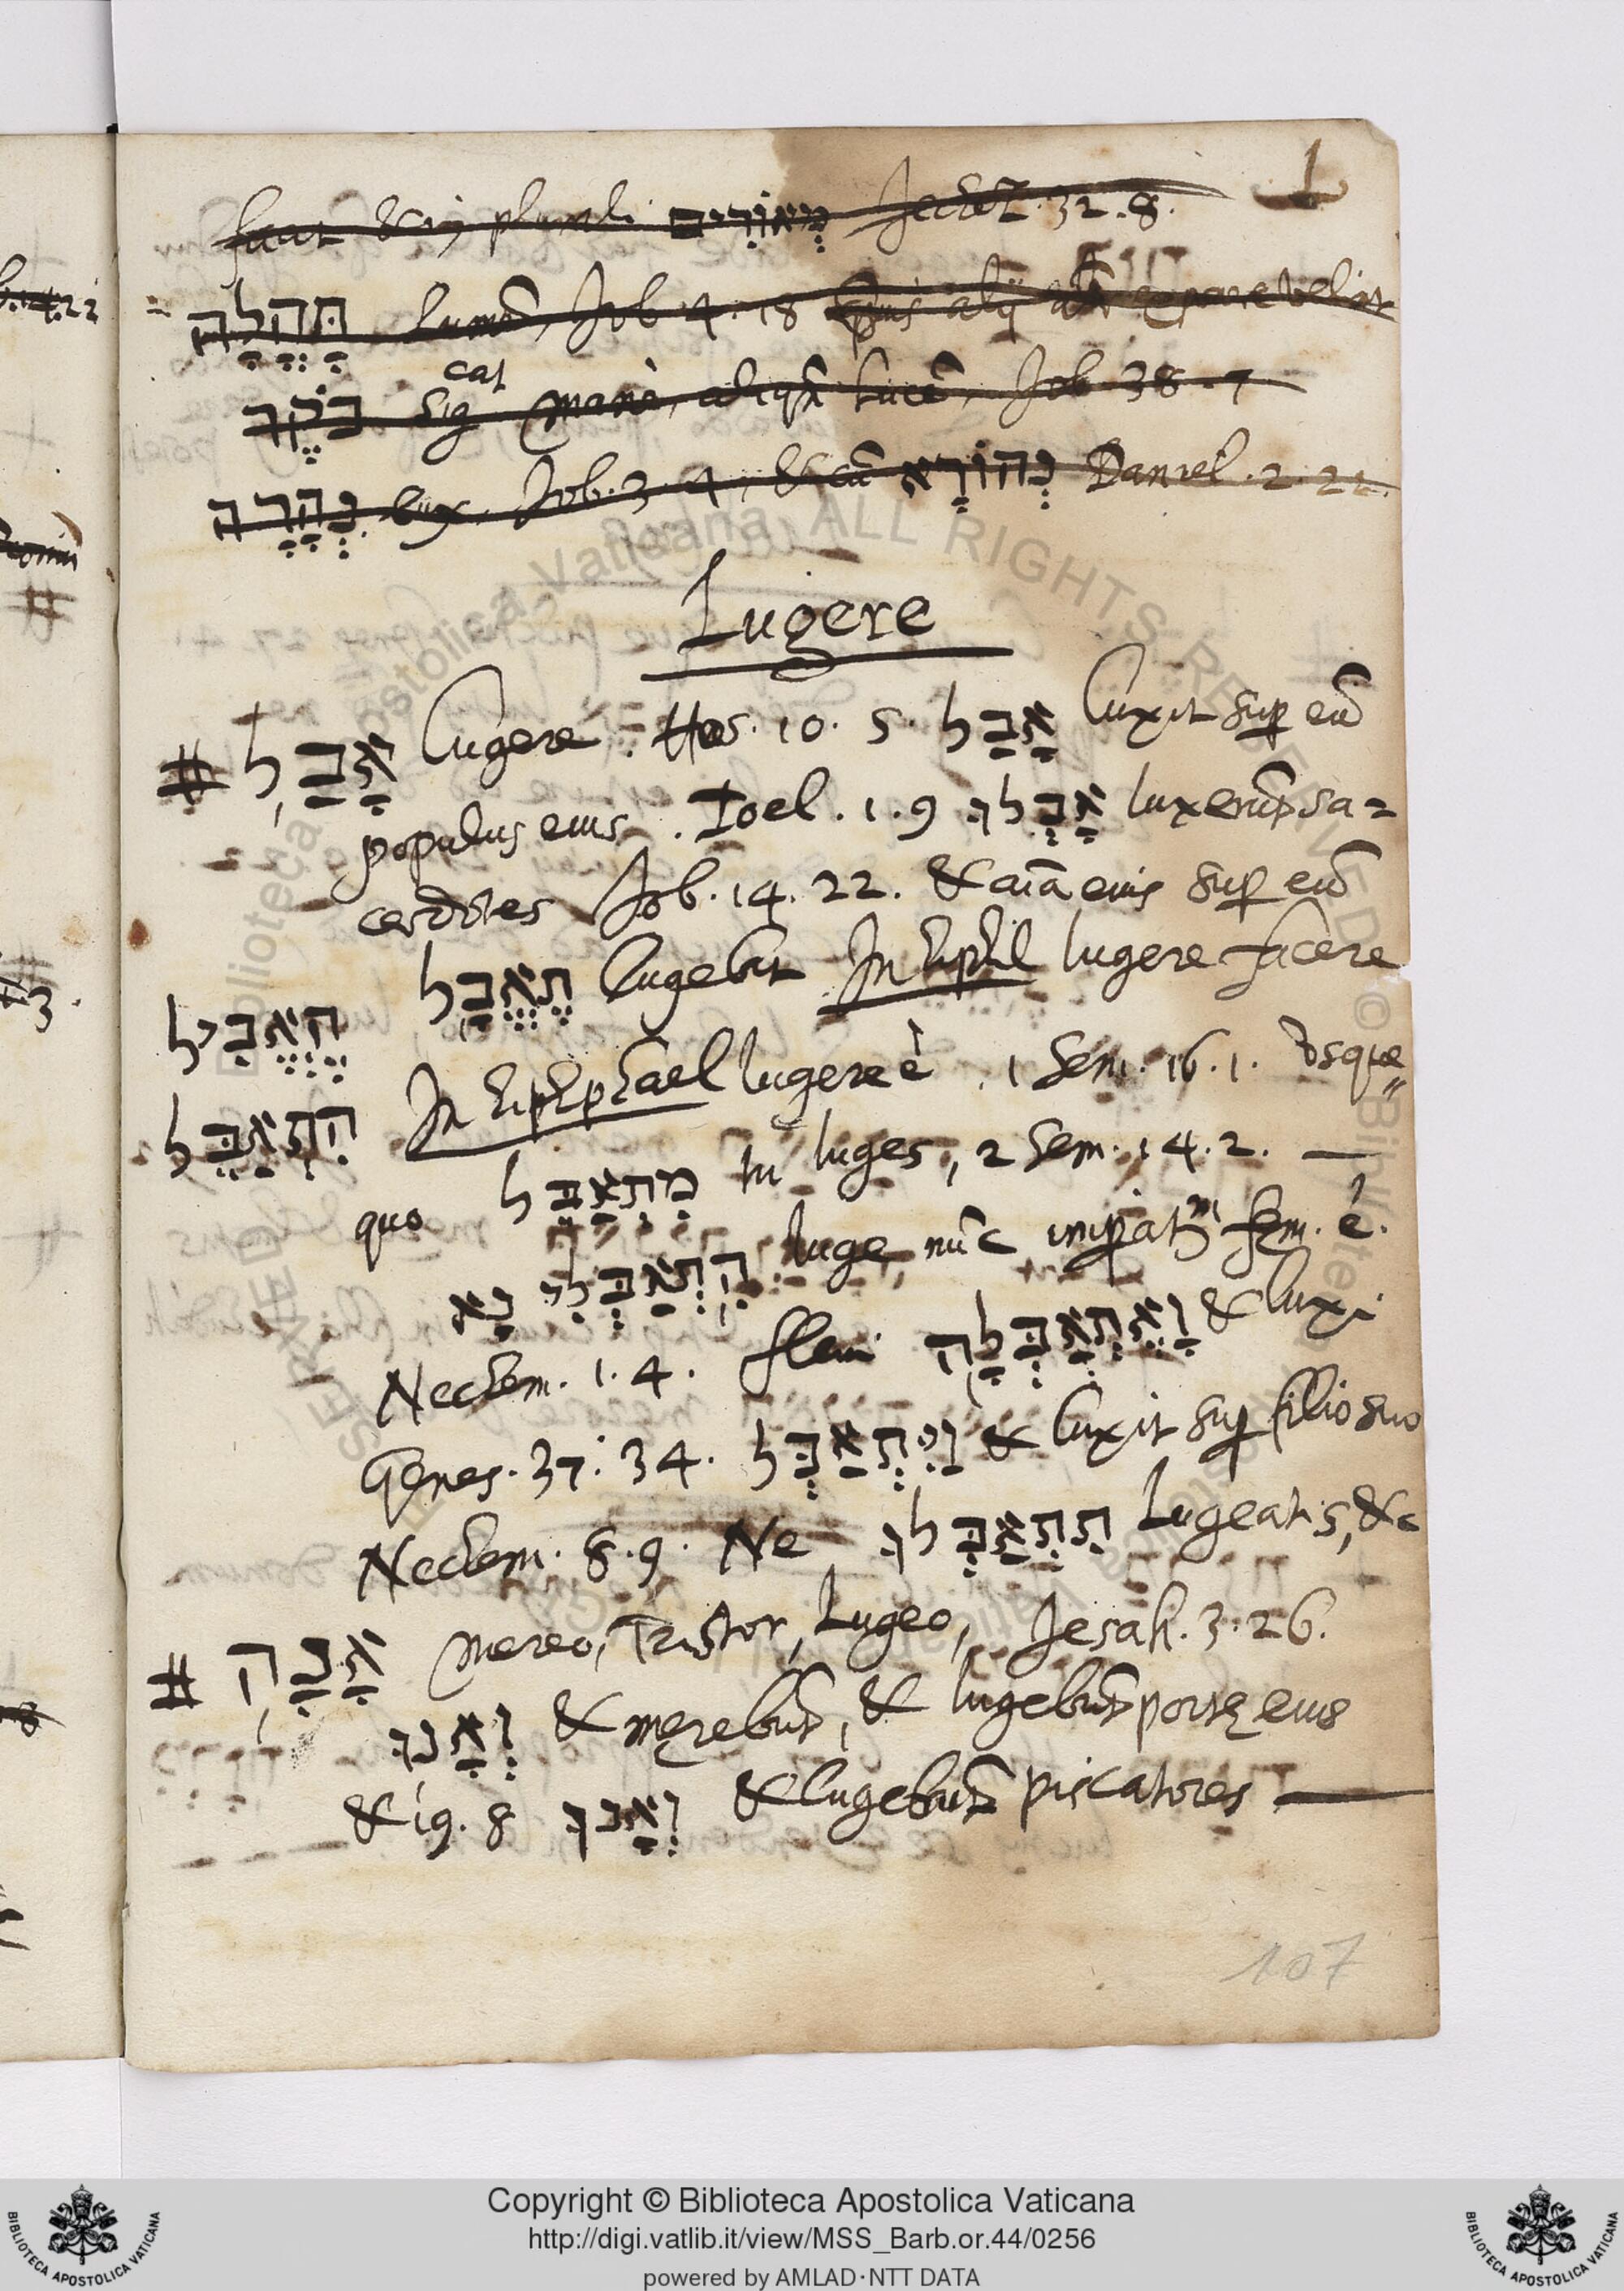 1
sunt & in plurali מְאוֹרִים Jechez. 32.8.
תָּהֳלָה lumē, Job 4.18
cat
בֹּקֶר sig manè, aliqn̄ lucē, Job 38.7
נְהָרָה lux. Job.3.4, & cū נְהוֹרָא Daniel.2.22.
Lugere
# אָבַל lugere. Hos. 10. 5. אָבַל luxit sup eū
populus eius. Ioel. 1. 9 אָבְלוּ luxerūt sa=
cerdotes Job. 14. 22. & aīa eius sup eū
תֶּאֱבָל lugebit In hiphil lugere facere
הֶאֱבִיל
הִתְאַבֵּל In hiphphael lugere è. 1 Sem. 16. 1. Vsque
quo מִתְאַבֵּל tu luges, 2 Sem. 14. 2. —
הִתְאַבְּלִי נָא luge nūc imperat. fem. è.
Nechem. 1. 4. fleui וָאֶתְאַבְּלָה & luxi
Genes. 37. 34. וַיִּתְאַבֵּל & luxit sup filio suo
Nechem. 8. 9. Ne תִּתְאַבְּלוּ Lugeatis, &c
# אָנָה mereo, Tristor, Lugeo, Jesah. 3. 26.
וְאָנוּ & merebūt, & lugebūt portę eius
& 19. 8 וְאָנוּ & lugebūt piscatores —
107
Copyright © Biblioteca Apostolica Vaticana
http://digi.vatlib.it/view/MSS_Barb.or.44/0256
powered by AMLAD·NTT DATA
BIBLIOTECA APOSTOLICA VATICANA
BIBLIOTECA APOSTOLICA VATICANA